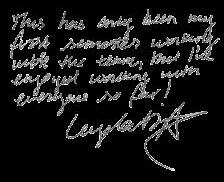 This has only been my
first semester working
with this team, but I've
enjoyed working with
everyone so far!